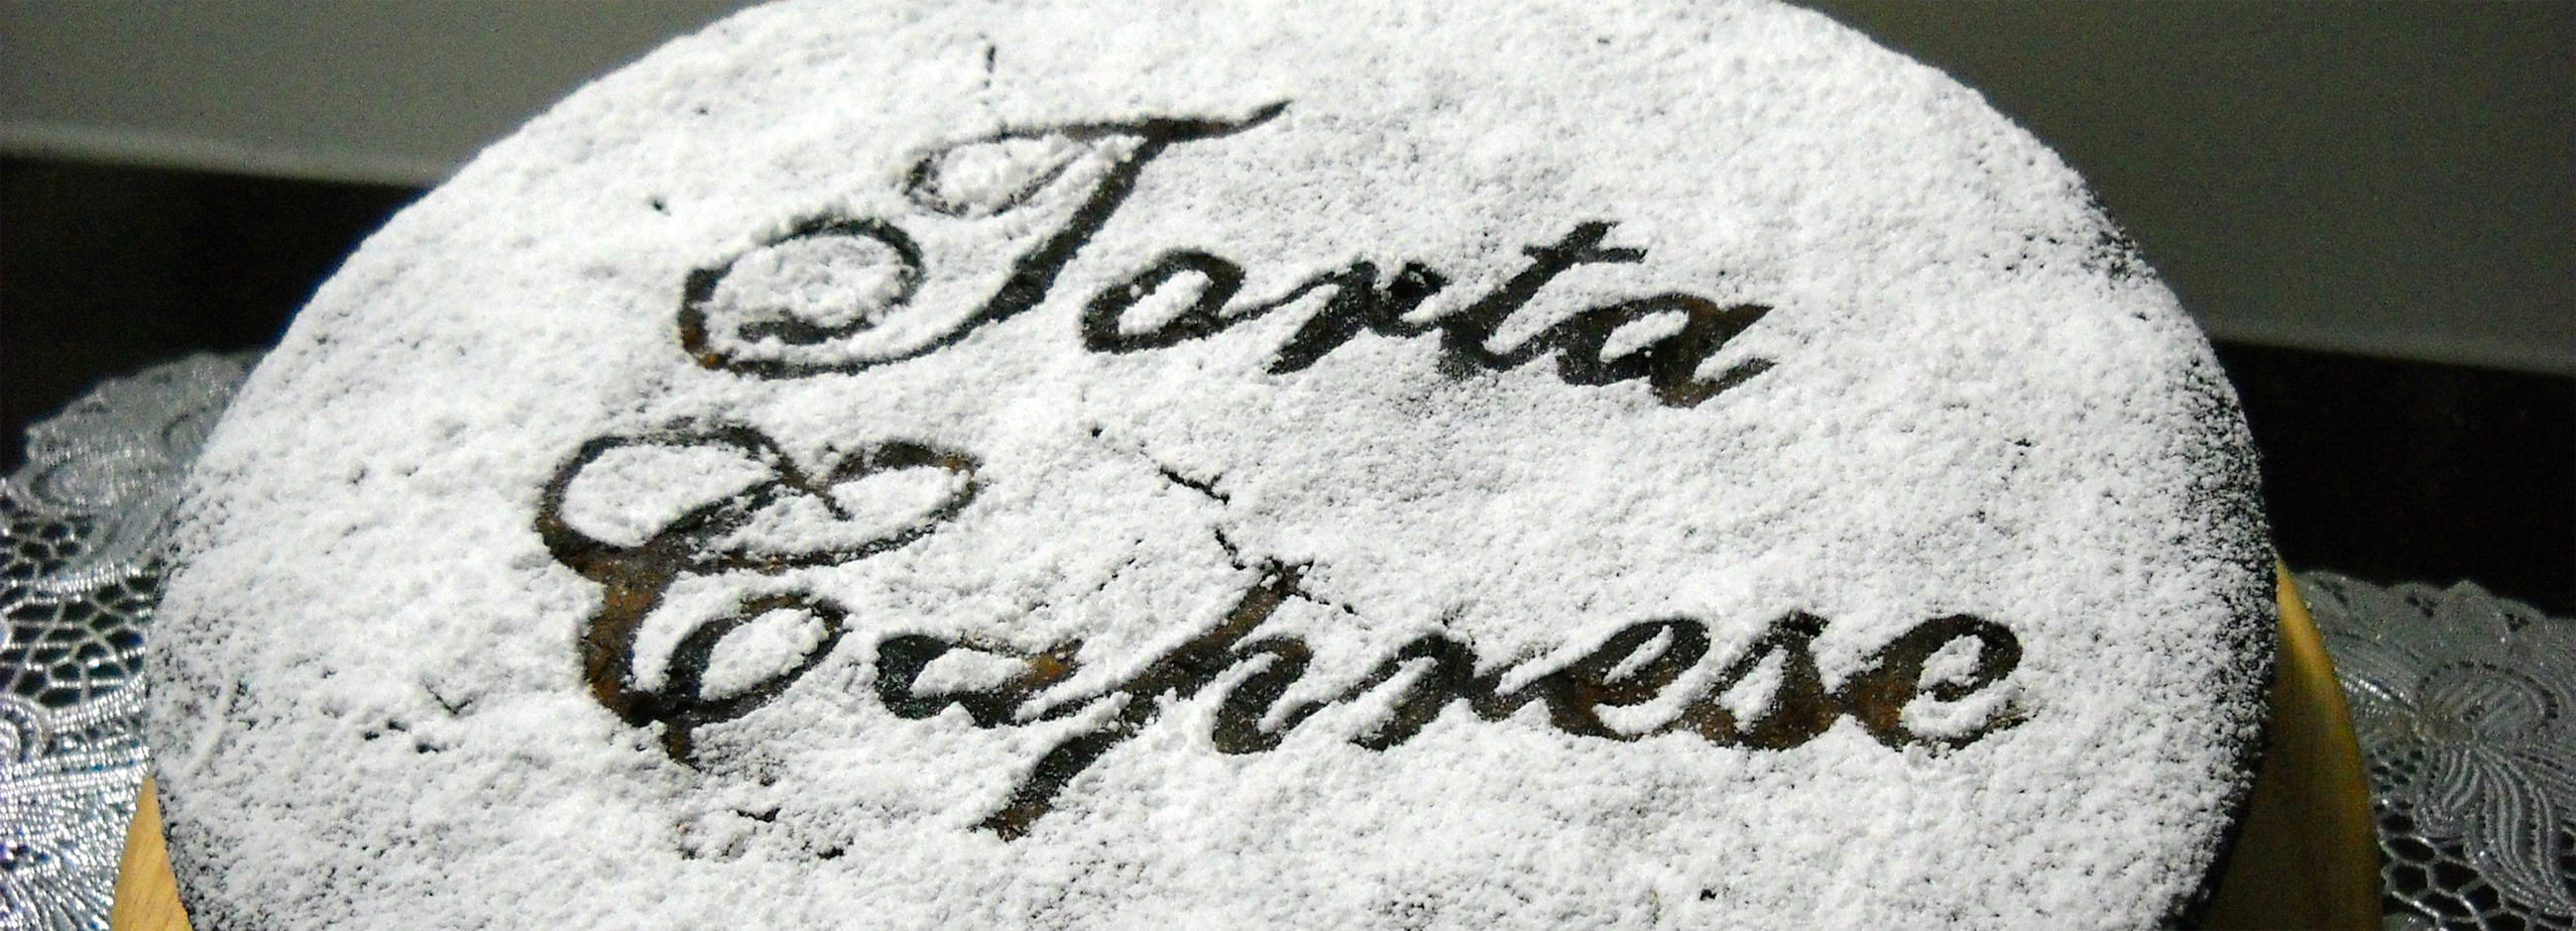 Torta
Caprese